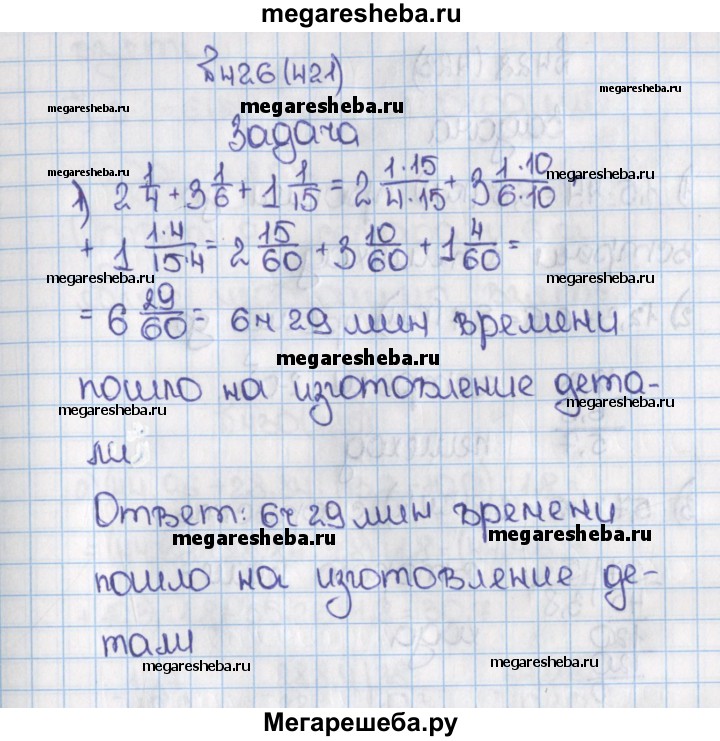 megaresheba.ru
№426 (421)
megaresheba.ru megaresheba.ru megaresheba.ru
Задача
1) 2 1/4 + 3 1/6 + 1 1/15 = 2 1·15/4·15 + 3 1·10/6·10 +
megaresheba.ru megaresheba.ru
+ 1 1·4/15·4 = 2 15/60 + 3 10/60 + 1 4/60 =
megaresheba.ru megaresheba.ru
= 6 29/60 = 6ч 29 мин времени
megaresheba.ru
пошло на изготовление дета-
megaresheba.ru megaresheba.ru
ли
Ответ: 6ч 29 мин времени
megaresheba.ru megaresheba.ru
пошло на изготовление де-
тали
megaresheba.ru megaresheba.ru
Мегарешеба.ру